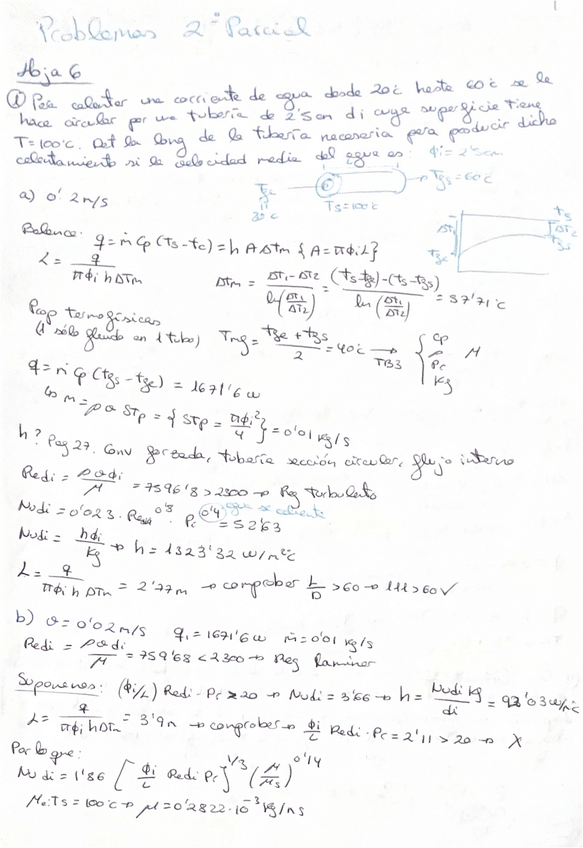 1
Problemas 2º Parcial
Hoja 6
① Para calentar una corriente de agua desde 20ºc hasta 60ºc se la
hace circular por una tubería de 2'5cm di cuya superficie tiene
T=100ºc. Det la long de la tubería necesaria para producir dicho
calentamiento si la velocidad media del agua es: ϕi=2'5cm
a) 0'2m/s
Ts=100ºc
Tfs=60ºc
Balance: q=ṁ Cp (Ts-Te) = h A ΔTm { A=πϕiL}
L = q / πϕi h ΔTm
ΔTm = ΔT1-ΔT2 / ln(ΔT1/ΔT2) = (Ts-tfe)-(Ts-tfs) / ln(ΔT1/ΔT2) = 57'71ºc
Prop termofísicas
(1 sólo fluido en 1 tubo) Tmf = tfe + tfs / 2 = 40ºc → TB3 { Cp ρ Pr kf μ
q = ṁ Cp (tfs - tfe) = 1671'6 w
↳ m = ρ v STp = { STp = πϕi²/4 } = 0'01 kg/s
h? Pag 27. Conv forzada, tubería sección circular, flujo interno
Redi = ρvϕi / μ = 7596'8 > 2300 → Reg turbulento
Nudi = 0'023 · Redi^0'8 · Pr^0'4 = 52'63 que se calienta
Nudi = hϕi / kf → h = 1323'32 w/m²ºc
L = q / πϕi h ΔTm = 2'77m → comprobar L/D > 60 → 111 > 60 ✓
b) v = 0'02m/s q1 = 1671'6w ṁ = 0'01 kg/s
Redi = ρvdi / μ = 759'68 < 2300 → Reg Laminar
Suponemos: (ϕi/L) Redi · Pr > 20 → Nudi = 3'66 → h = Nudi kf / di = 92'03 w/m²ºc
L = q / πϕi h ΔTm = 3'9m → comprobar → ϕi/L Redi · Pr = 2'11 > 20 → X
Por lo que:
Nudi = 1'86 [ ϕi/L Redi Pr ]^1/3 (μ/μs)^0'14
Ts = 100ºc → μ = 0'2822·10^-3 kg/ms